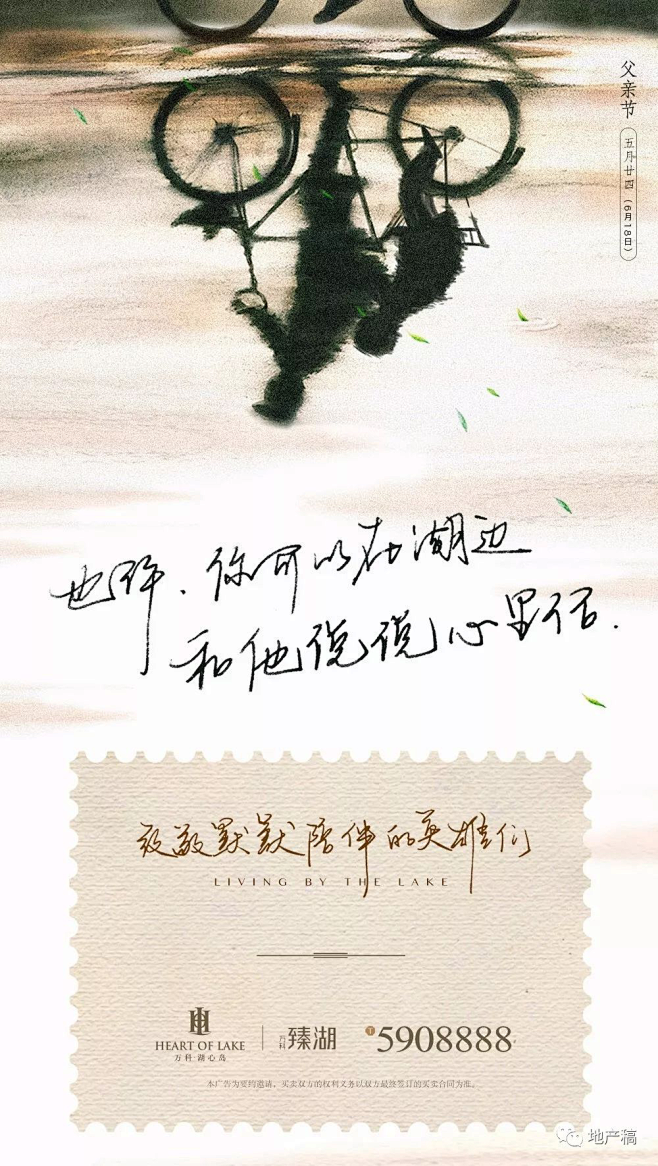 父亲节
五月廿四（6月18日）
也许、你可以在湖边
和他说说心里话.
致敬默默陪伴的英雄们
LIVING BY THE LAKE
HEART OF LAKE
万科·湖心岛
万科 臻湖
5908888
本广告为要约邀请，买卖双方的权利义务以双方最终签订的买卖合同为准。
地产稿